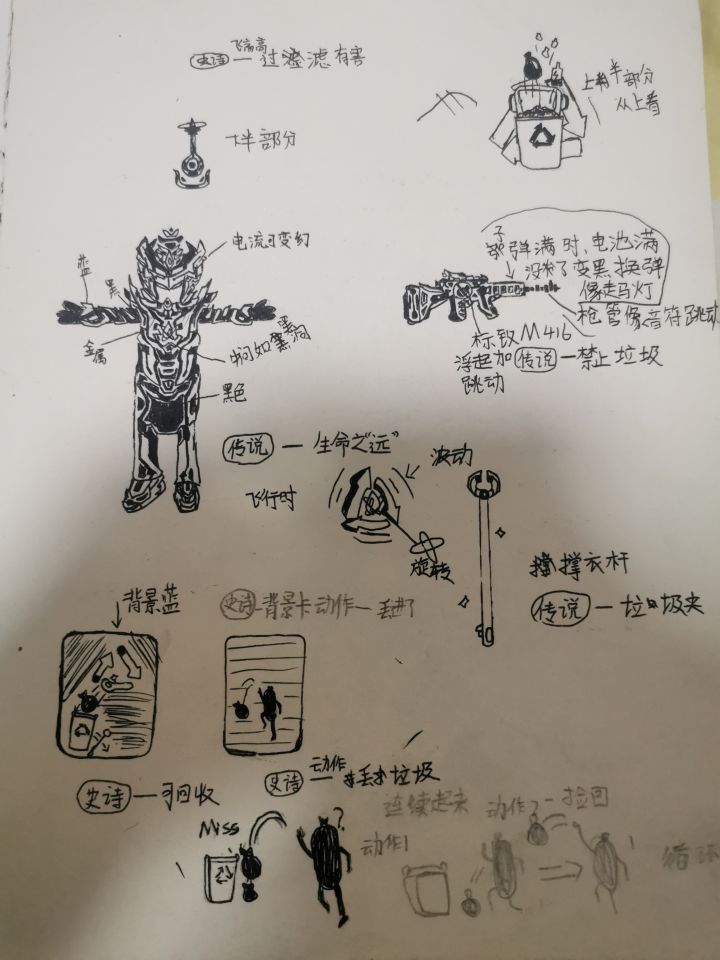 飞行高
史诗 — 过滤有害
上半部分
从上看
大半部分
电流可变幻
蓝
黑
金属
中间如黑洞
黑色
子弹满时,电池满
没有了变黑换弹
像走马灯
枪管像音符跳动
标致M416
浮起加
跳动
传说 — 禁止垃圾
传说 — 生命之"远"
波动
飞行时
旋转
撑衣杆
传说 — 垃圾夹
背景蓝
史诗 — 背景卡动作 — 丢进了
史诗 — 可回收
史诗 — 动作 丢垃圾
Miss
?
动作1
连续起来
动作2 — 捡回
循环